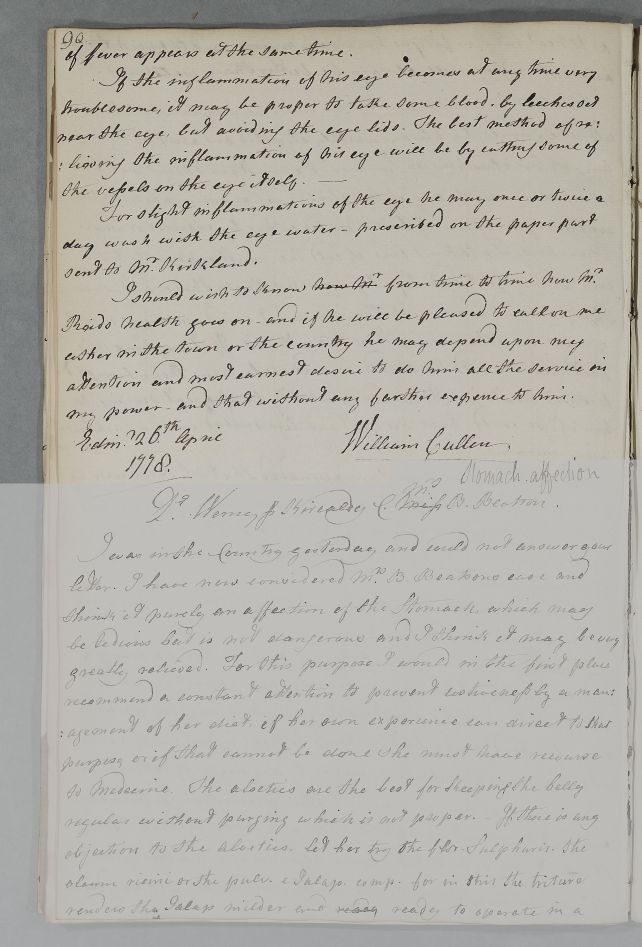 90
of fever appears at the same time.
If the inflammation of his eye becomes at any time very
troublesome, it may be proper to take some blood by leeches set
near the eye, but avoiding the eye lids. The best method of re:
:lieving the inflammation of his eye will be by cutting some of
the vessels on the eye itself.
For slight inflammations of the eye he may once or twice a
day wash with the eye water - prescribed on the paper part
sent to Mr. Kirkland.
I should wish to know how Mr from time to time how Mr.
Reids health goes on - and if he will be pleased to call on me
either in the town or the country he may depend upon my
attention and most earnest desire to do him all the service in
my power - and that without any farther expence to him.
Edinr. 26.th April
1778.
William Cullen.
Stomach affection
Dr. Wemyss Kircaldy C. Miss Mrs B. Beatson.
I was in the Country yesterday and could not answer your
letter. I have now considered Mrs. B. Beatsons case and
think it purely an affection of the Stomach, which may
be tedious but is not dangerous and I think it may be very
greatly relieved. For this purpose I would in the first place
recommend a constant attention to prevent costiveness by a man:
:agement of her diet, if her own experience can direct to that
purpose, or if that cannot be done she must have recourse
to Medicine. The aloetics are the best for keeping the belly
regular without purging which is not proper. - If there is any
objection to the aloetics. Let her try the flor. Sulphuris. the
oleum ricini or the pulv. e Jalap. comp. for in this the triture
renders the Jalap milder and ready to operate in a